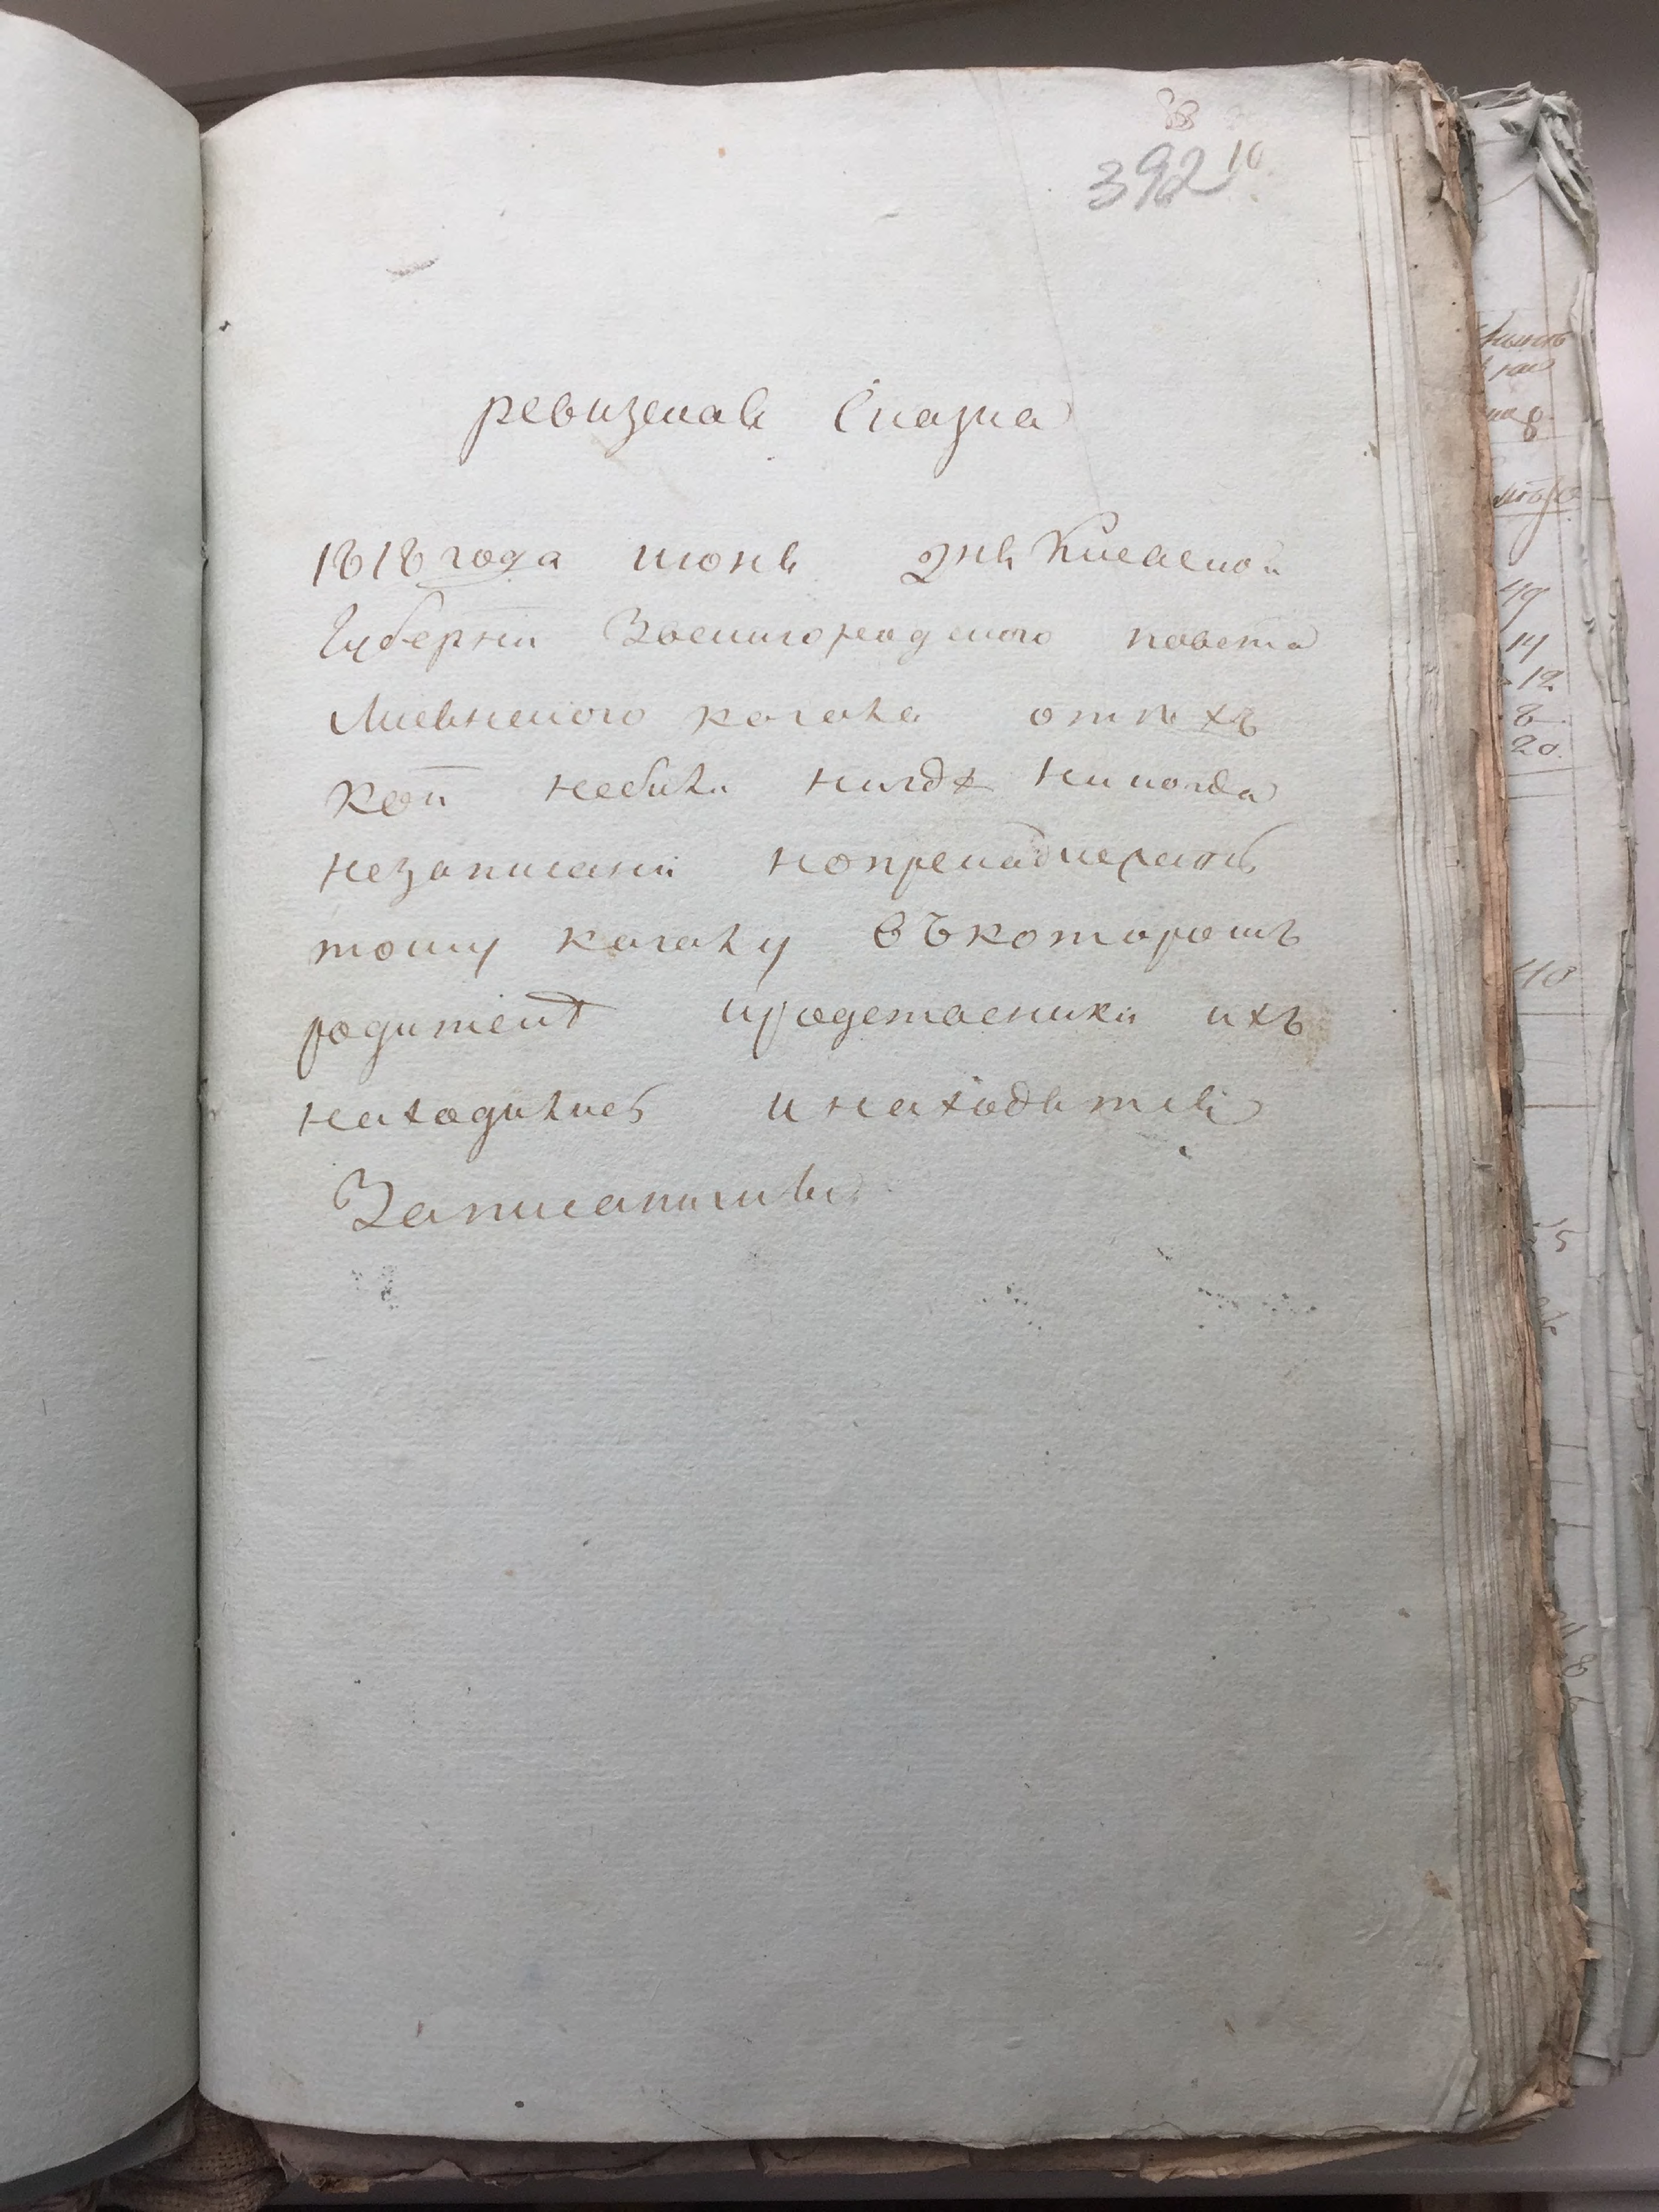 88
392 10
ревизская Сказка
1818 года июня дня Киевской
Губернїи Звенигородского повета
Лисянского кагала отѣхъ
кои небили нигдѣ никогда
незаписаны нопренадлежатъ
тому кагалу въкоторомъ
родители иродственики ихъ
находились инаходятся
Записаними
49
14
12
8
20
40